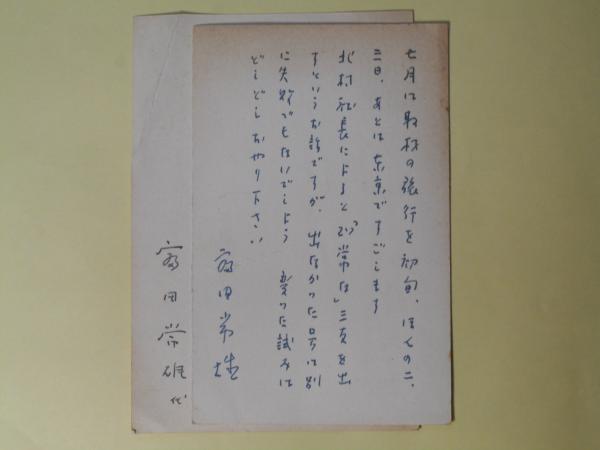 七月は取材の旅行を初旬、ほんの二、
三日、あとは東京ですごします
北村社長によると 常な」三頁を出
すというお話ですが、出なかった号は別
に失敗でもないでしょう 変った試みは
どしどしおやり下さい
富田常雄
富田常雄 代